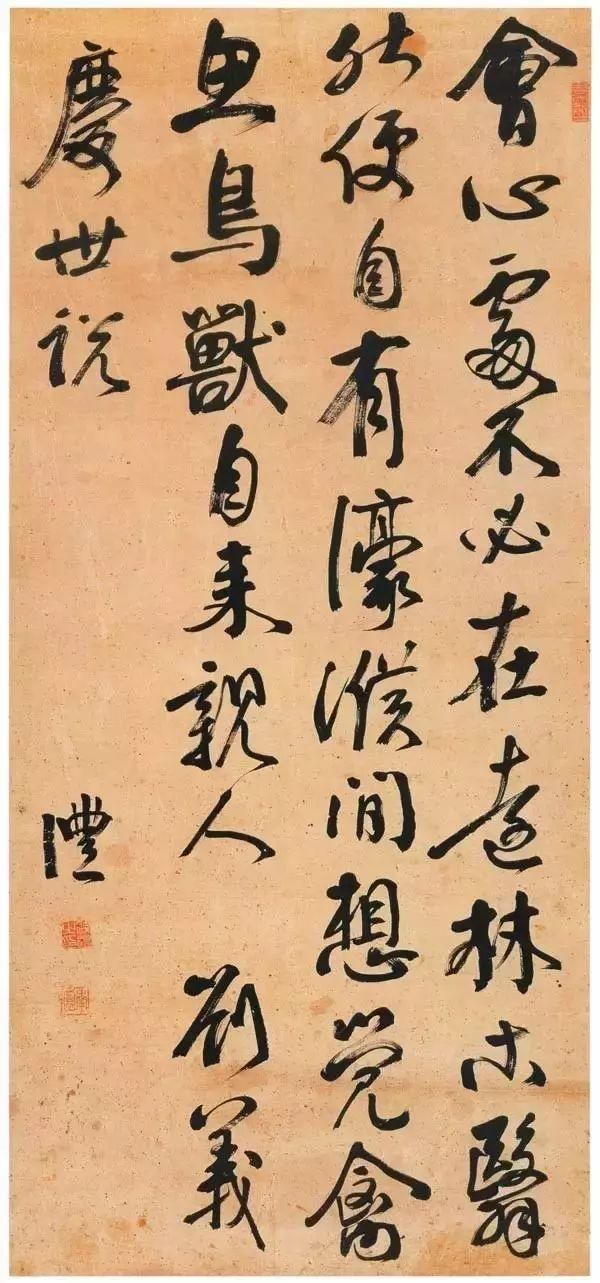 會心處不必在遠林木翳
然便自有濠濮間想覺禽
魚鳥獸自来親人 劉義
慶世說